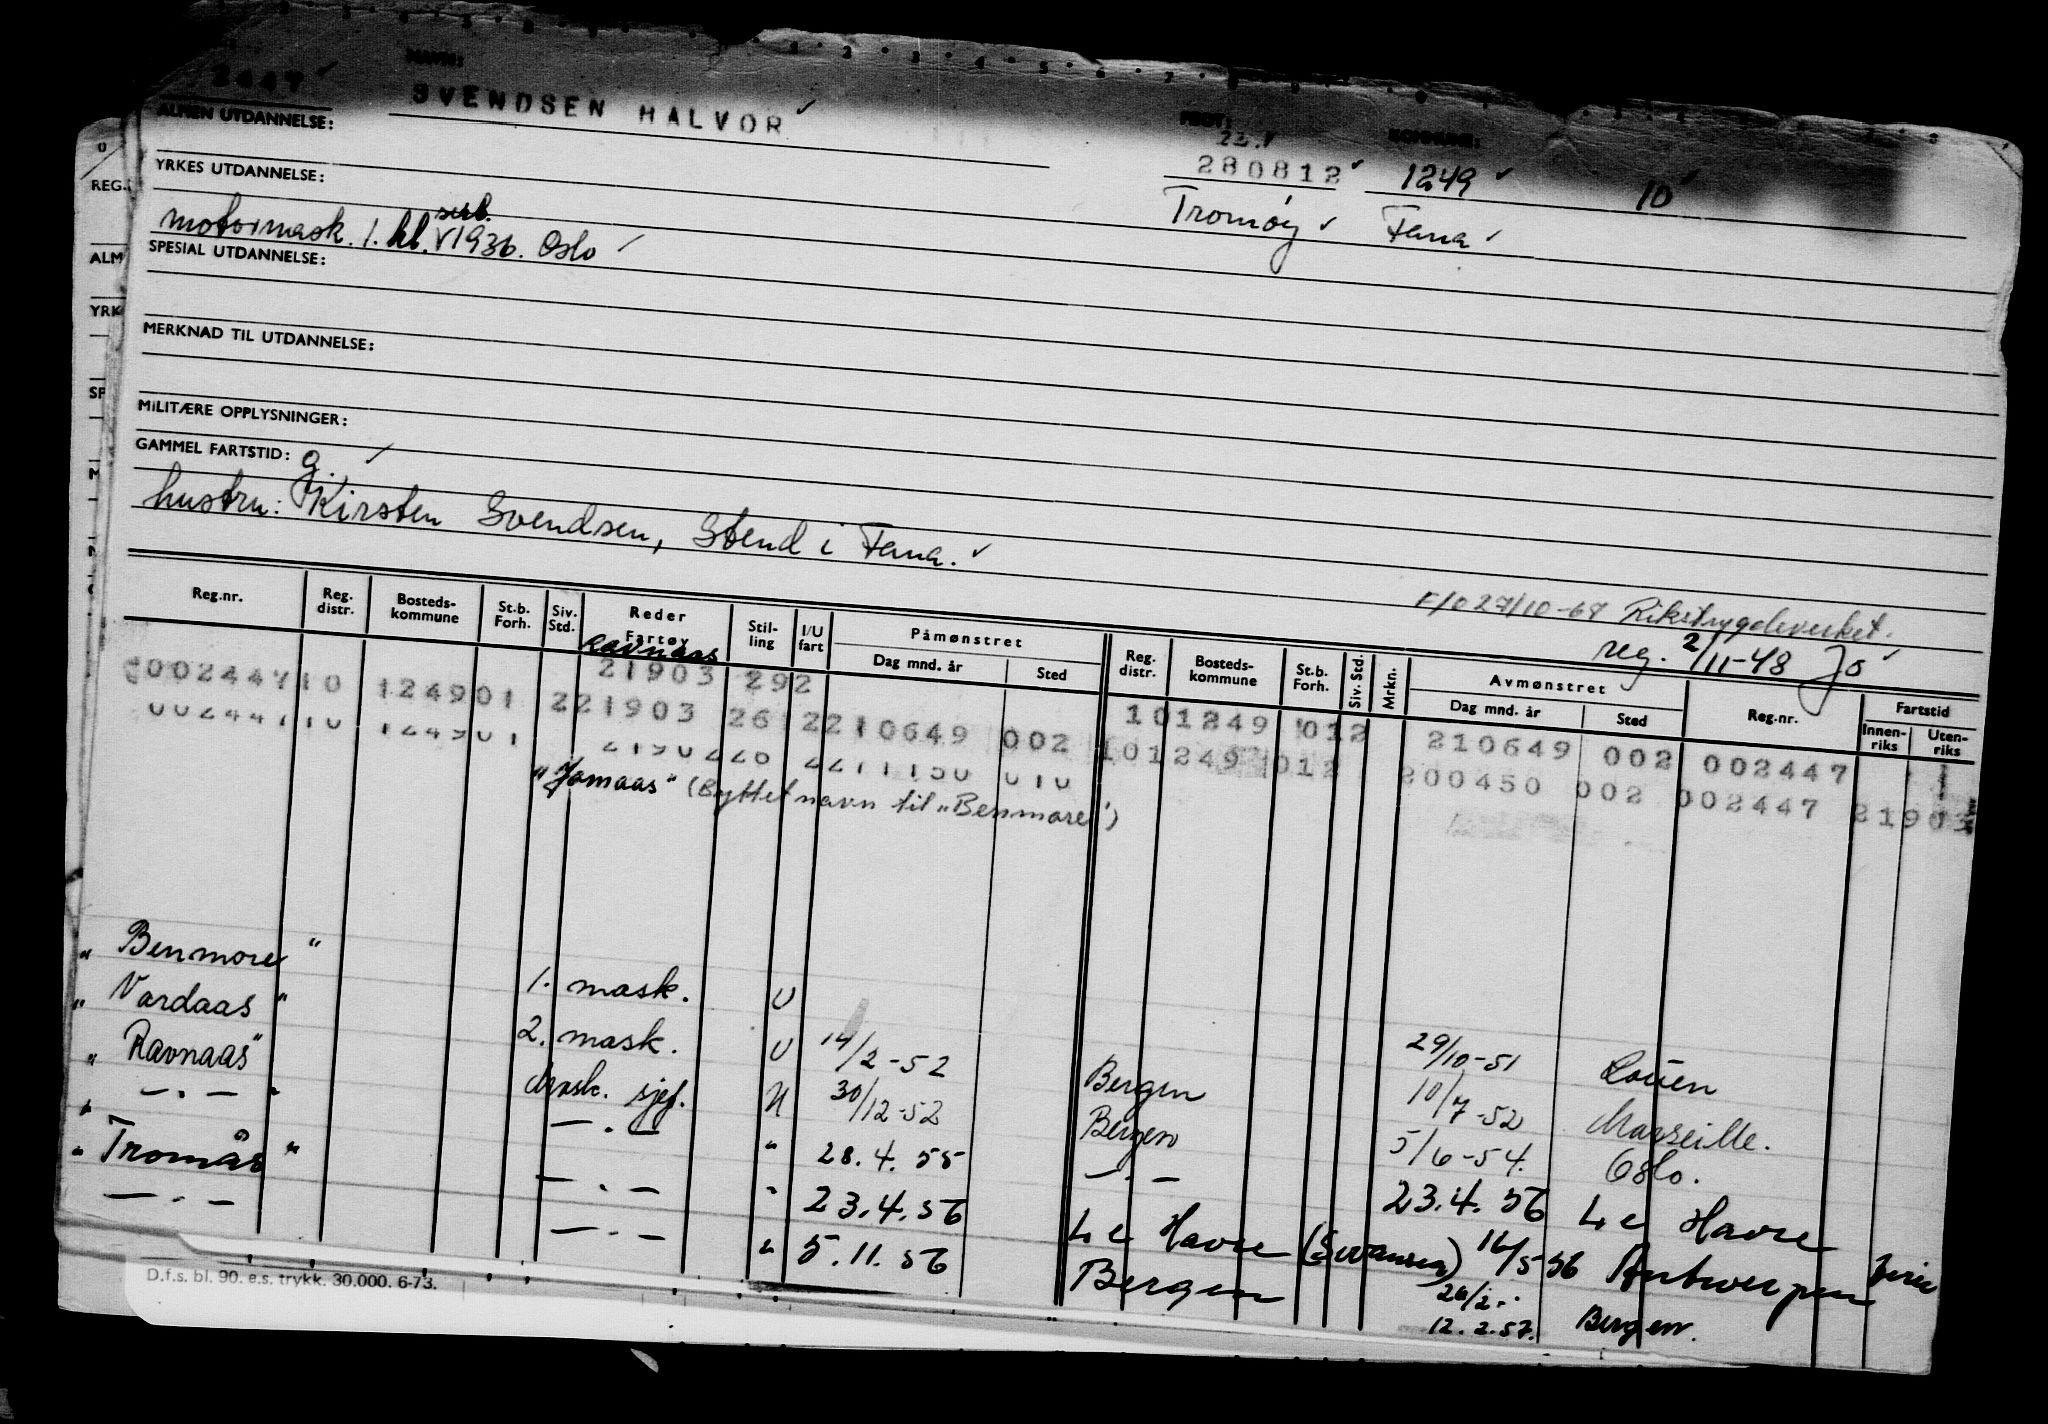 2447 ✓ NAVN:
SVENDSEN HALVOR ✓ FØDT: KOMMUNE:
ALMEN UTDANNELSE: 22. ✓
280812 ✓ 1249 ✓ 10 ✓
YRKES UTDANNELSE: Tromøy ✓ Fana ✓
motormask. 1. kl. sert. V1936. Oslo ✓
SPESIAL UTDANNELSE:
MERKNAD TIL UTDANNELSE:
MILITÆRE OPPLYSNINGER:
GAMMEL FARTSTID: g. ✓
hustru: Kirsten Svendsen, Stend i Fana. ✓
F/O 27/10-67 Rikstrygdeverket.
reg. 2/11-48 Jo ✓
Reg.nr. Reg. distr. Bosteds-kommune St.b. Forh. Siv. Std. Reder Fartøy Stil-ling I/U fart Påmønstret Dag mnd. år Sted Reg. distr. Bosteds-kommune St.b. Forh. Siv. Std. Mrkn. Avmønstret Dag mnd. år Sted Reg.nr. Fartstid Innen-riks Uten-riks
Ravnaas
00244710 124901 21903 292
221903 26 2210649 002 101249 012 210649 002 002447
101249 012 200450 002 002447 21903
"Jomaas" (Byttet navn til "Benmore")
"Benmore" 1. mask. U 29/10-51 Rouen
"Vardaas" 2. mask. U 14/2-52 Bergen 10/7-52 Marseille.
"Ravnaas" Mask. sjef. U 30/12-52 Bergen 5/6-54. Oslo.
" —.— " —.— " 28.4.55 —.— 23.4.56 Le Havre
"Tromås" —.— " 23.4.56 Le Havre (Swansea) 16/5-56 Antwerpen ferie
—.— —.— " 5.11.56 Bergen 12.2.57. Bergen.
D.f.s. bl. 90. e.s. trykk. 30.000. 6-73.
REG.
ALM
YRK
SP
M